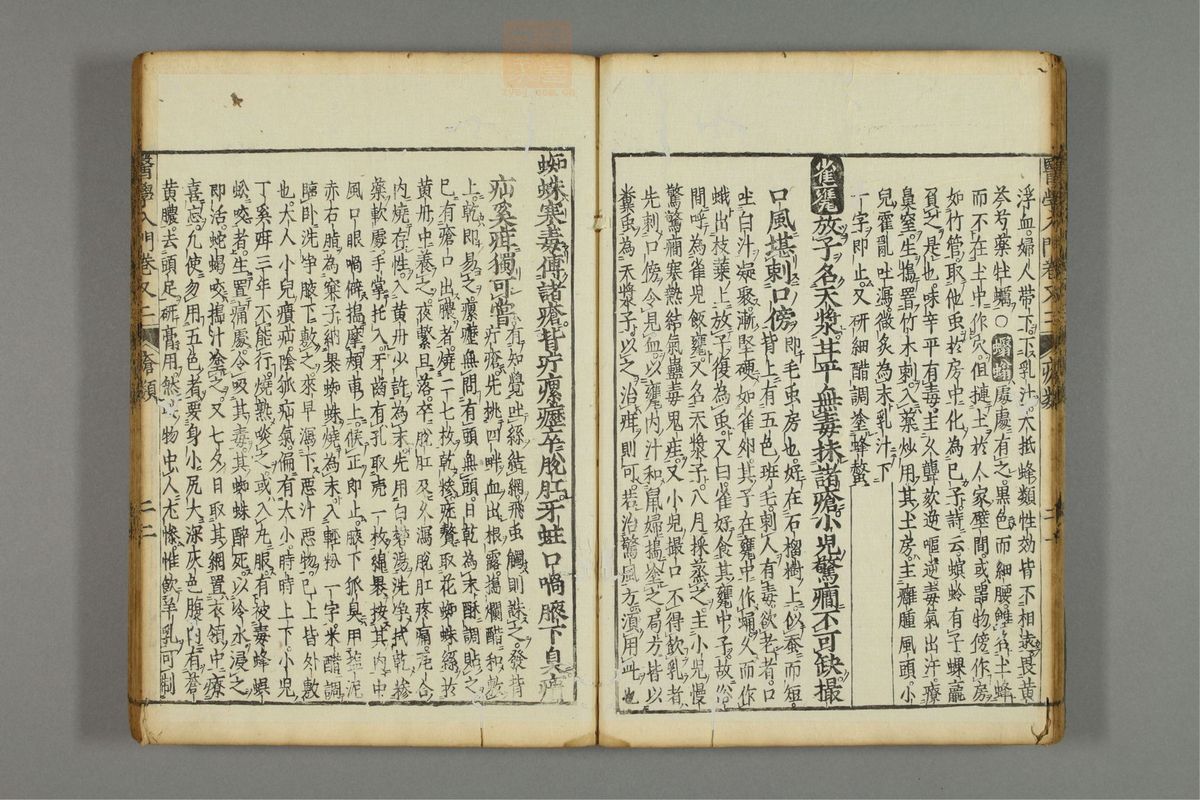 浮血婦人帶下下乳汁大抵蜂類性効皆不相遠畏黃
芩芍藥牡蠣○蠮螉處處有之黑色而細腰雖名土蜂
而不在土中作穴但摙土於人家壁間或器物傍作房
如竹管取他虫於房中化為已子詩云螟蛉有子蜾蠃
負之是也味辛平有毒主久聾欬逆嘔逆毒氣出汗療
鼻窒生搗罯竹木刺入藥炒用其土房主癰腫風頭小
兒霍亂吐瀉微炙為末乳汁下
一字即止又研細醋調塗蜂螫
雀甕放子名天漿甘平無毒抹諸瘡小兒驚癎不可缺撮
口風堪刺口傍即毛虫房也好在石榴樹上似蚕而短
背上有五色班毛刺人有毒欲老者口
吐白汁凝聚漸堅硬如雀卵其子在甕中作蛹久而作
蛾出枝葉上放子復為虫又曰雀好食其甕中子故俗
間呼為雀兒飯甕又名天漿子八月採蒸之主小兒慢
驚驚癎寒熱結氣蠱毒鬼疰又小兒撮口不得飲乳者
先刺口傍令見血以甕內汁和鼠婦搗塗之局方皆以
糞虫為天漿子以之治疳則可若治驚風方湏用此也
醫學入門卷又二 瘡類
蜘蛛寒毒傅諸瘡背疔瘰癧卒脫肛牙蛀口喎腋下臭
疝奚疳獨可嘗
有知覺吐絲結網飛虫觸則蛛之發背
疔瘡先挑四畔血出根露搗爛醋和敷
上乾即易之瘰癧無問有頭無頭日乾為末酥調貼之
已有瘡口出膿者燒二十七枚乾摻疣贅取花蜘蛛絲於
黃丹中養之夜繫旦落卒脫肛及久瀉脫肛疼痛
內燒存性入黃丹少許為末先用白礬湯洗净拭乾摻
藥軟處手掌托入牙齒有孔取殼一枚綿裹按其內中
風口眼喎僻搵摩頰車上候正即止腋下狐臭用塩泥
赤石脂為窠子納裹蜘蛛燒為末入輕粉一字米醋調
臨卧洗净腋下敷之來早瀉下惡汁惡物已上皆外敷
也大人小兒㿗疝陰狐疝氣偏有大小時時上下小兒
丁奚疳三年不能行燒熟啖之或入丸服有被毒蜂螟
蚣咬者生置痛處令吸其毒其蜘蛛醉死以冷水浸之
即活蛇蝎咬搗汁塗之又七夕日取其網置衣領中療
喜忘凡使勿用五色者要身小尻大深灰色腹內有蒼
黃膿去頭足研膏用然物虫人尤慘惟飲羊乳可制
醫學入門卷又二 瘡類 二二